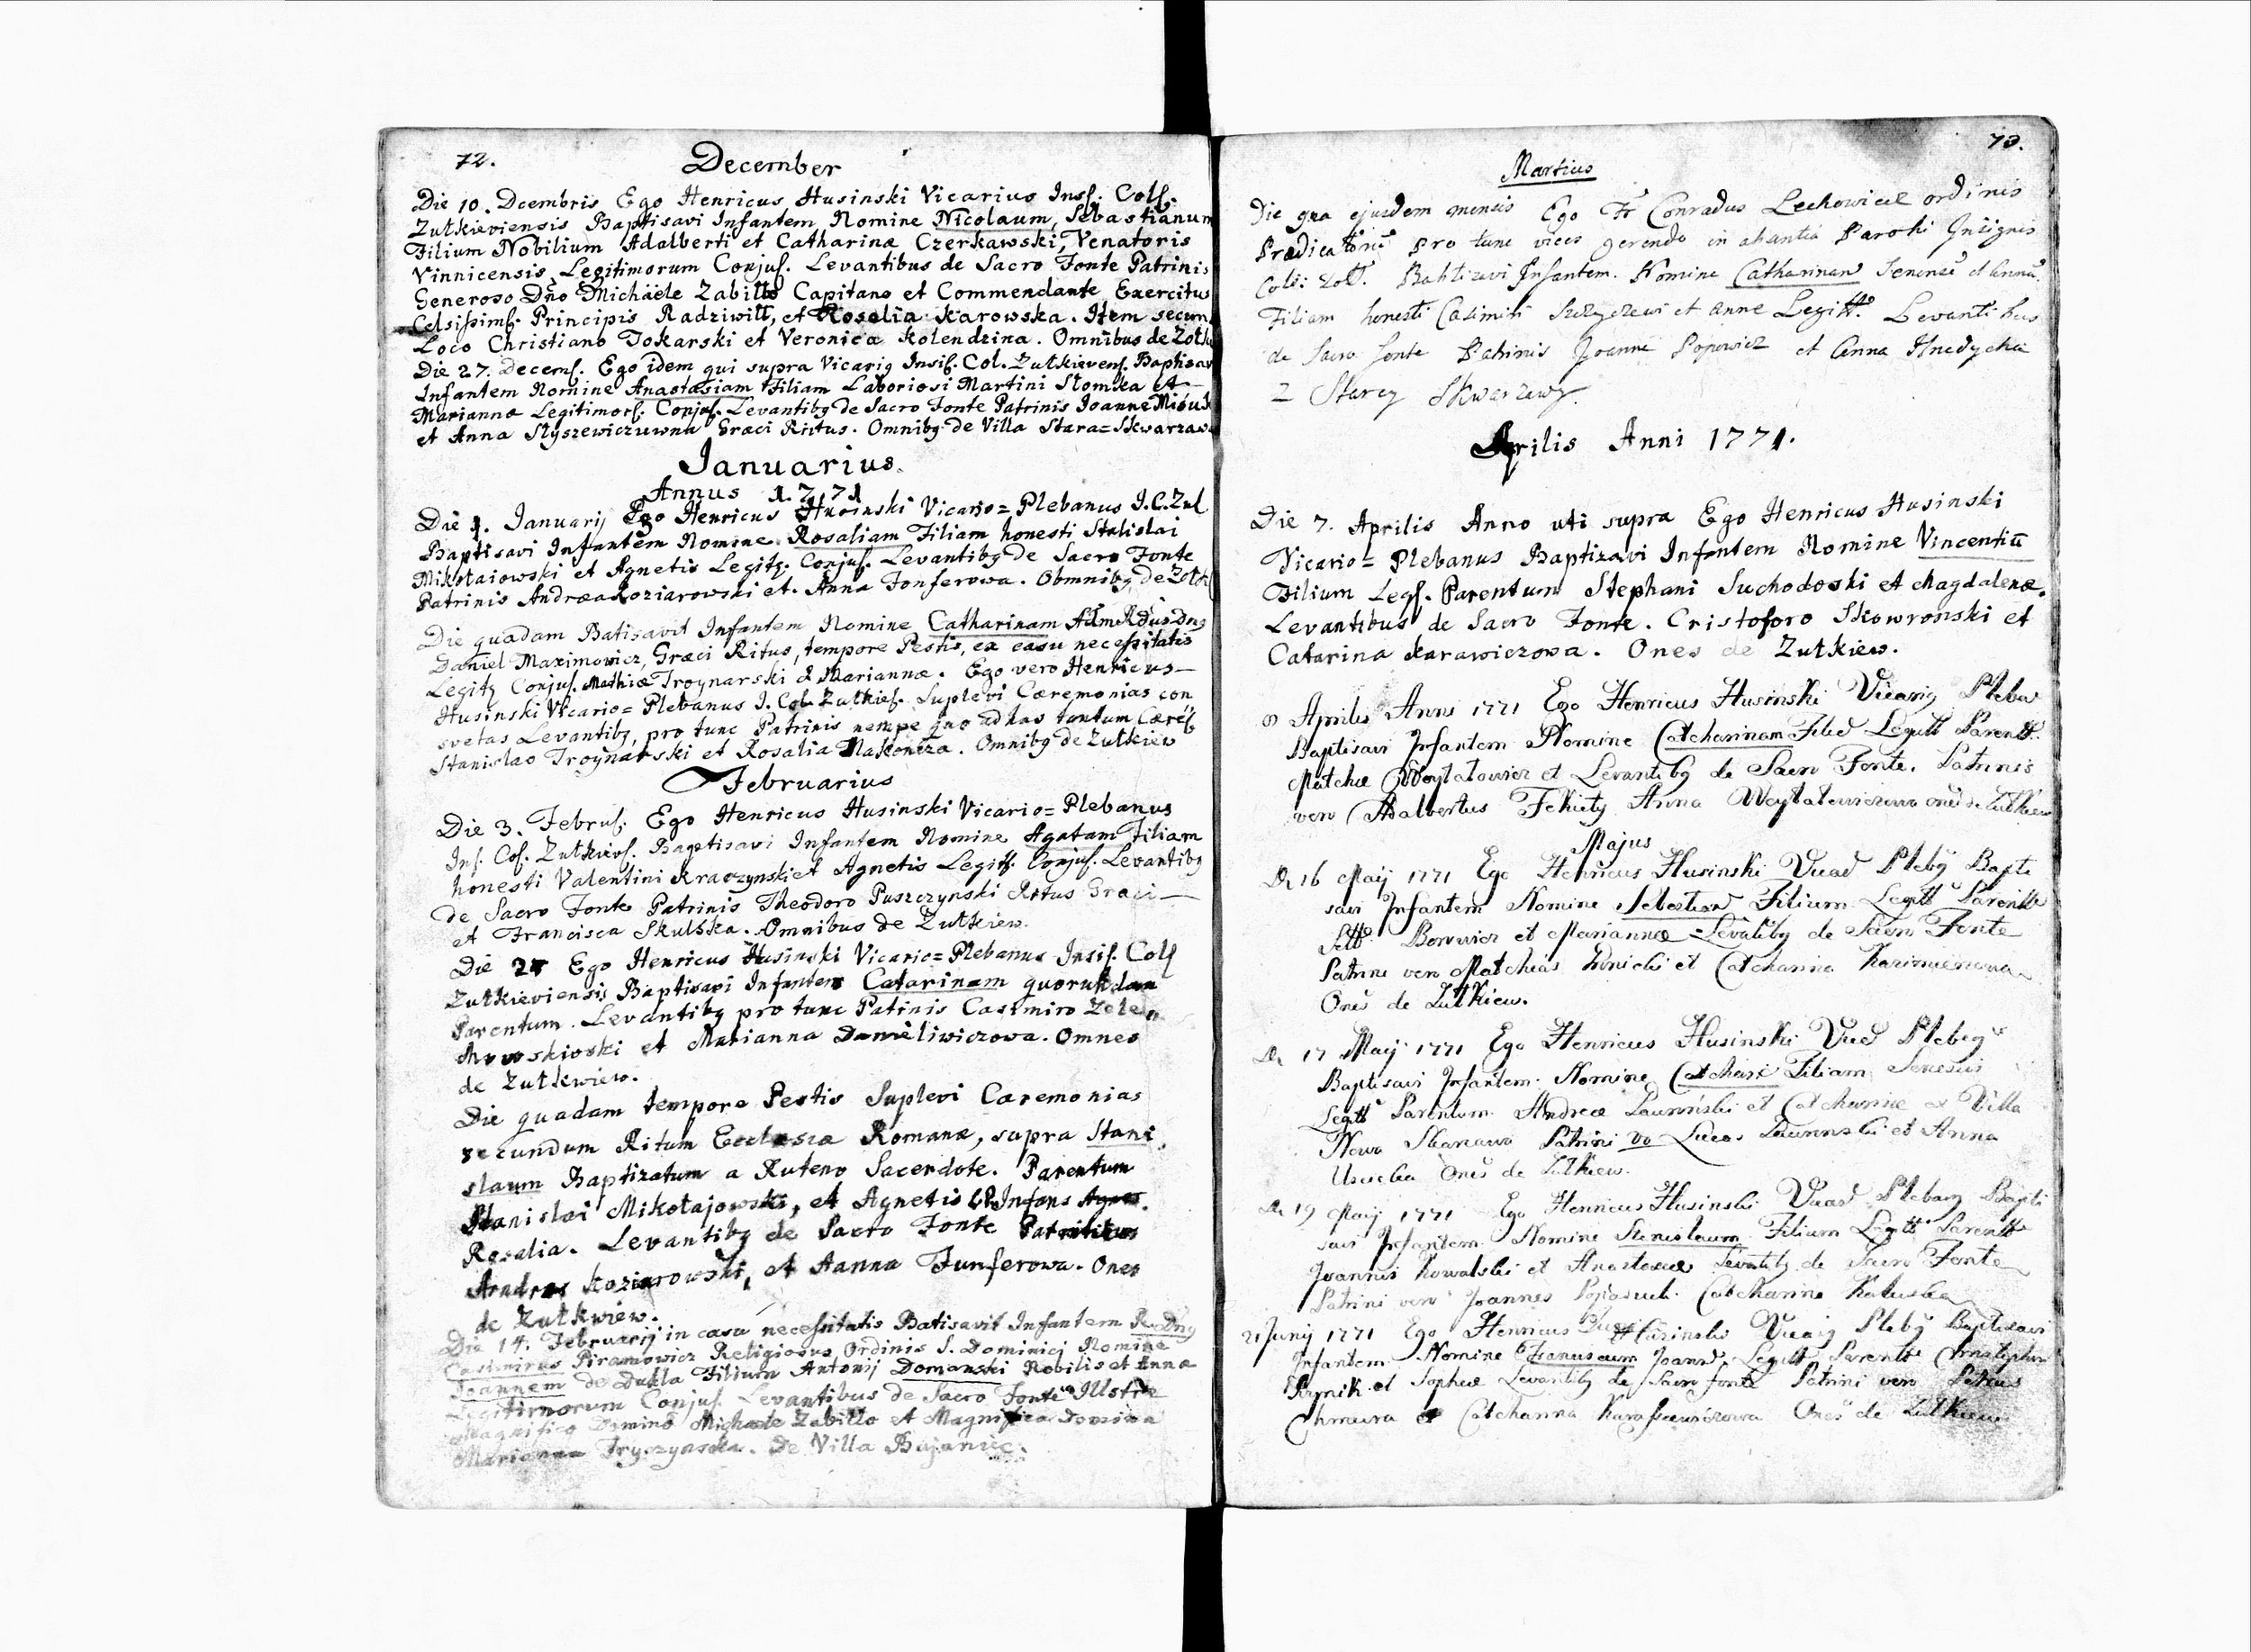 72.
December
Die 10. Dcembris Ego Henricus Husinski Vicarius Insf. Colf.
Zutkieviensis Baptisavi Infantem Nomine Nicolaum, Sebastianum
Filium Nobilium Adalberti et Catharinæ Czerkawski, Venatoris
Vinnicensis Legitimorum Conjuf. Levantibus de Sacro Fonte Patrinis
Generoso Dño Michäele Zabiłło Capitano et Commendante Exercitus
Celsissimf. Principis Radziwiłł, et Rosalia Karowska. Item secun
Loco Christiano Tokarski et Veronica Kolendzina. Omnibus de Zołk
Die 27. Decemf. Ego idem qui supra Vicarig Insif. Col. Zutkievenf. Baptisav
Infantem Nomine Anastasiam Filiam Laboriosi Martini Słomka et
Mariannæ Legitimorf. Conjuf. Levantibg de Sacro Fonte Patrinis Joanne
et Anna Słyszewiczuwna Græci Ritus. Omnibg de Villa Stara=Skwarzawa
Januarius.
Annus 1771
Die 1. Januarij Ego Henricus Husinski Vicario=Plebanus J.C.Zul
Baptisavi Infantem Nomine Rosaliam Filiam honesti Stalislai
Mikołaiowski et Agnetis Legitg. Conjuf. Levantibg de Sacro Fonte
Patrinis Andræa Koziarowski et Anna Fonferowa. Obmnibg de Zołk
Die quadam Batisavit Infantem Nomine Catharinam AdmRdus Dng
Daniel Maximowicz, Græci Ritus, tempore Pestis, ex casu necessitatis
Legitg Conjuf. Mathiæ Troynarski et Mariannæ. Ego vero Henricus
Husinski Vicario=Plebanus J. Col. Zutkief. Suplevi Cæremonias con
svetas Levantibg, pro tunc Patrinis nempe quo ad has tantum
Stanislao Troynarski et Rosalia Makoncza. Omnibg de Zutkiew
Februarius
Die 3. Februf. Ego Henricus Husinski Vicario=Plebanus
Inf. Cof. Zutkievf. Baptisavi Infantem Nomine Agatam Filiam
honesti Valentini Kraczynski et Agnetis Legitf. Conjuf. Levantibg
de Sacro Fonte Patrinis Theodoro Puszczynski Ritus Græci
et Francisca Skulska. Omnibus de Zutkiew.
Die 24 Ego Henricus Husinski Vicario=Plebanus Insif. Colf
Zutkieviensis Baptisavi Infantem Catarinam quorukdam
Parentum. Levantibg pro tunc Patinis Casimiro
et Marianna Danieliwiczowa. Omnes
de Zutkwiew.
Die quadam tempore Pestis Suplevi Cæremonias
secundum Ritum Ecclesiæ Romanæ, supra Stani
slaum Baptizatum a Ruteno Sacerdote. Parentum
Stanislai Mikołajowski, et Agnetis Infans
Rosalia. Levantibg de Sacro Fonte
Andrea Koziarowski, et Aanna Funferowa. Ones
de Zutkwiew.
Die 14. Februarij in casu necessitatis Batisavit Infantem R. Dng
Casimirus Piramowicz Religiosus Ordinis S. Dominici Nomine
Joannem de Dukla Filium Antonij Domanski Nobilis et Annæ
Legitimorum Conjuf. Levantibus de Sacro Fonte Illstre
Magnifico Domino Michaele Zabiłło et Magnifica Domina
Marianna. De Villa Bujaniec.
73.
Martius
Die qua ejusdem mensis Ego Fr Conradus Lechowicz ordinis
Prædicatorũ pro tunc vices gerendo in absentia Parochi Insignis
Coll: Zołł. Babtizavi Infantem. Nomine Catharinam
Filiam honesti Casimiri et Anne Legitt. Levantibus
de Sacro fonte Patrinis Joanne Popowicz et Anna Hnedycha
z Starey Skwarzewy.
Aprilis Anni 1771.
Die 7. Aprilis Anno uti supra Ego Henricus Husinski
Vicario=Plebanus Baptizavi Infantem Nomine Vincentiũ
Filium Legf. Parentum Stephani Suchodoski et Magdalenæ.
Levantibus de Sacro Fonte. Cristoforo Skowronski et
Catarina Karawiczowa. Ones de Zutkiew.
Aprilis Anni 1771 Ego Henricus Husinski Vicarig Pleba
Baptisavi Infantem Nomine Catcharinam Legitt Parentt.
Matchæ Woytatowicz et Levantibg de Sacro Fonte. Patrinis
vero Adalbertus Fekiety Anna Woytatowiczowa de Zutkiew
Majus
16 Maij 1771 Ego Henricus Husinski Plebg Bapti
savi Infantem Nomine Sebestian Filium Legitt Parentt
Borowicz et Mariannæ Levatibg de Sacro Fonte
Patrini vero Matchias et Catcharina
Ones de Zutkiew.
17 Maij 1771 Ego Henricus Husinski Plebeg
Baptisavi Infantem Nomine Filiam
Legitt Parentum Andreæ et Catcharinæ ex Villa
Nowa Patrini vo Lucas et Anna
Ones de Zutkiew.
19 Maij 1771 Ego Henricus Husinski Plebang Bapti
savi Infantem Nomine Stenislaum Filium Legitt Parentt
Joannis Kowalski et Anastasiæ Levatibg de Sacro Fonte
Patrini vero Joannes Catcharina
21 Junij 1771 Ego Henricus Husinski Vicarig Plebg Baptisavi
Infantem Nomine Franciscum Joann Legitt Parentt
et Sophiæ Levantibg de Sacro fonte Patrini vero Petrus
Chmura et Catcharina Ones de Zutkiew